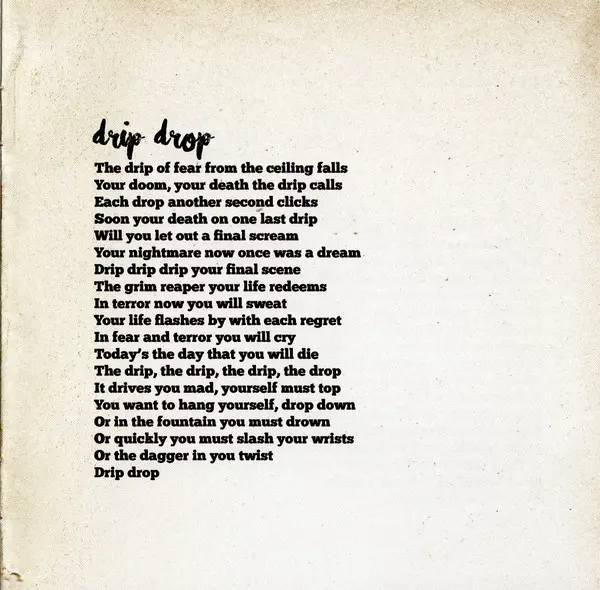 drip drop
The drip of fear from the ceiling falls
Your doom, your death the drip calls
Each drop another second clicks
Soon your death on one last drip
Will you let out a final scream
Your nightmare now once was a dream
Drip drip drip your final scene
The grim reaper your life redeems
In terror now you will sweat
Your life flashes by with each regret
In fear and terror you will cry
Today's the day that you will die
The drip, the drip, the drip, the drop
It drives you mad, yourself must top
You want to hang yourself, drop down
Or in the fountain you must drown
Or quickly you must slash your wrists
Or the dagger in you twist
Drip drop